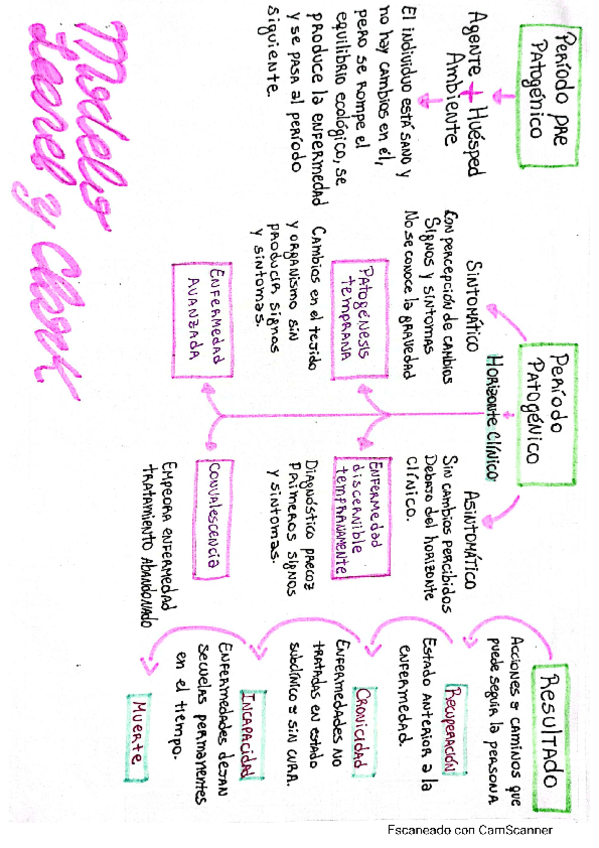 Modelo
Leavel y Clark
PERÍODO PRE
PATOGÉNICO
Agente + Huésped
Ambiente
El individuo está sano y
no hay cambios en él,
pero se rompe el
equilibrio ecológico, se
produce la enfermedad
y se pasa al período
siguiente.
Período
Patogénico
Horizonte Clínico
Sintomático
Con percepción de cambios
Signos y síntomas
No se conoce la gravedad
Asintomático
Sin cambios percibidos
Debajo del horizonte
clínico.
Patogénesis
temprana
Cambios en el tejido
y organismo sin
producir signos
y síntomas.
Enfermedad
discernible
tempranamente
Diagnóstico precoz
Primeros signos
y síntomas.
Enfermedad
Avanzada
Convalescencia
Empeora enfermedad
tratamiento abandonado
Resultado
Acciones o caminos que
puede seguir la persona
Recuperación
Estado anterior a la
enfermedad.
Cronicidad
Enfermedades no
tratadas en estado
subclínico o sin cura.
Incapacidad
Enfermedades dejan
secuelas permanentes
en el tiempo.
Muerte
Escaneado con CamScanner